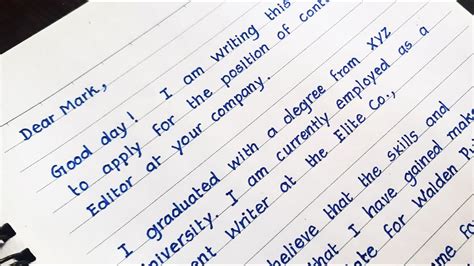 Dear Mark,
Good day! I am writing this
to apply for the position of cont
Editor at your company.
I graduated with a degree from XYZ
niversity. I am currently employed as a
ent Writer at the Elite Co.,
believe that the skills and
that I have gained make
ate for Walden
me